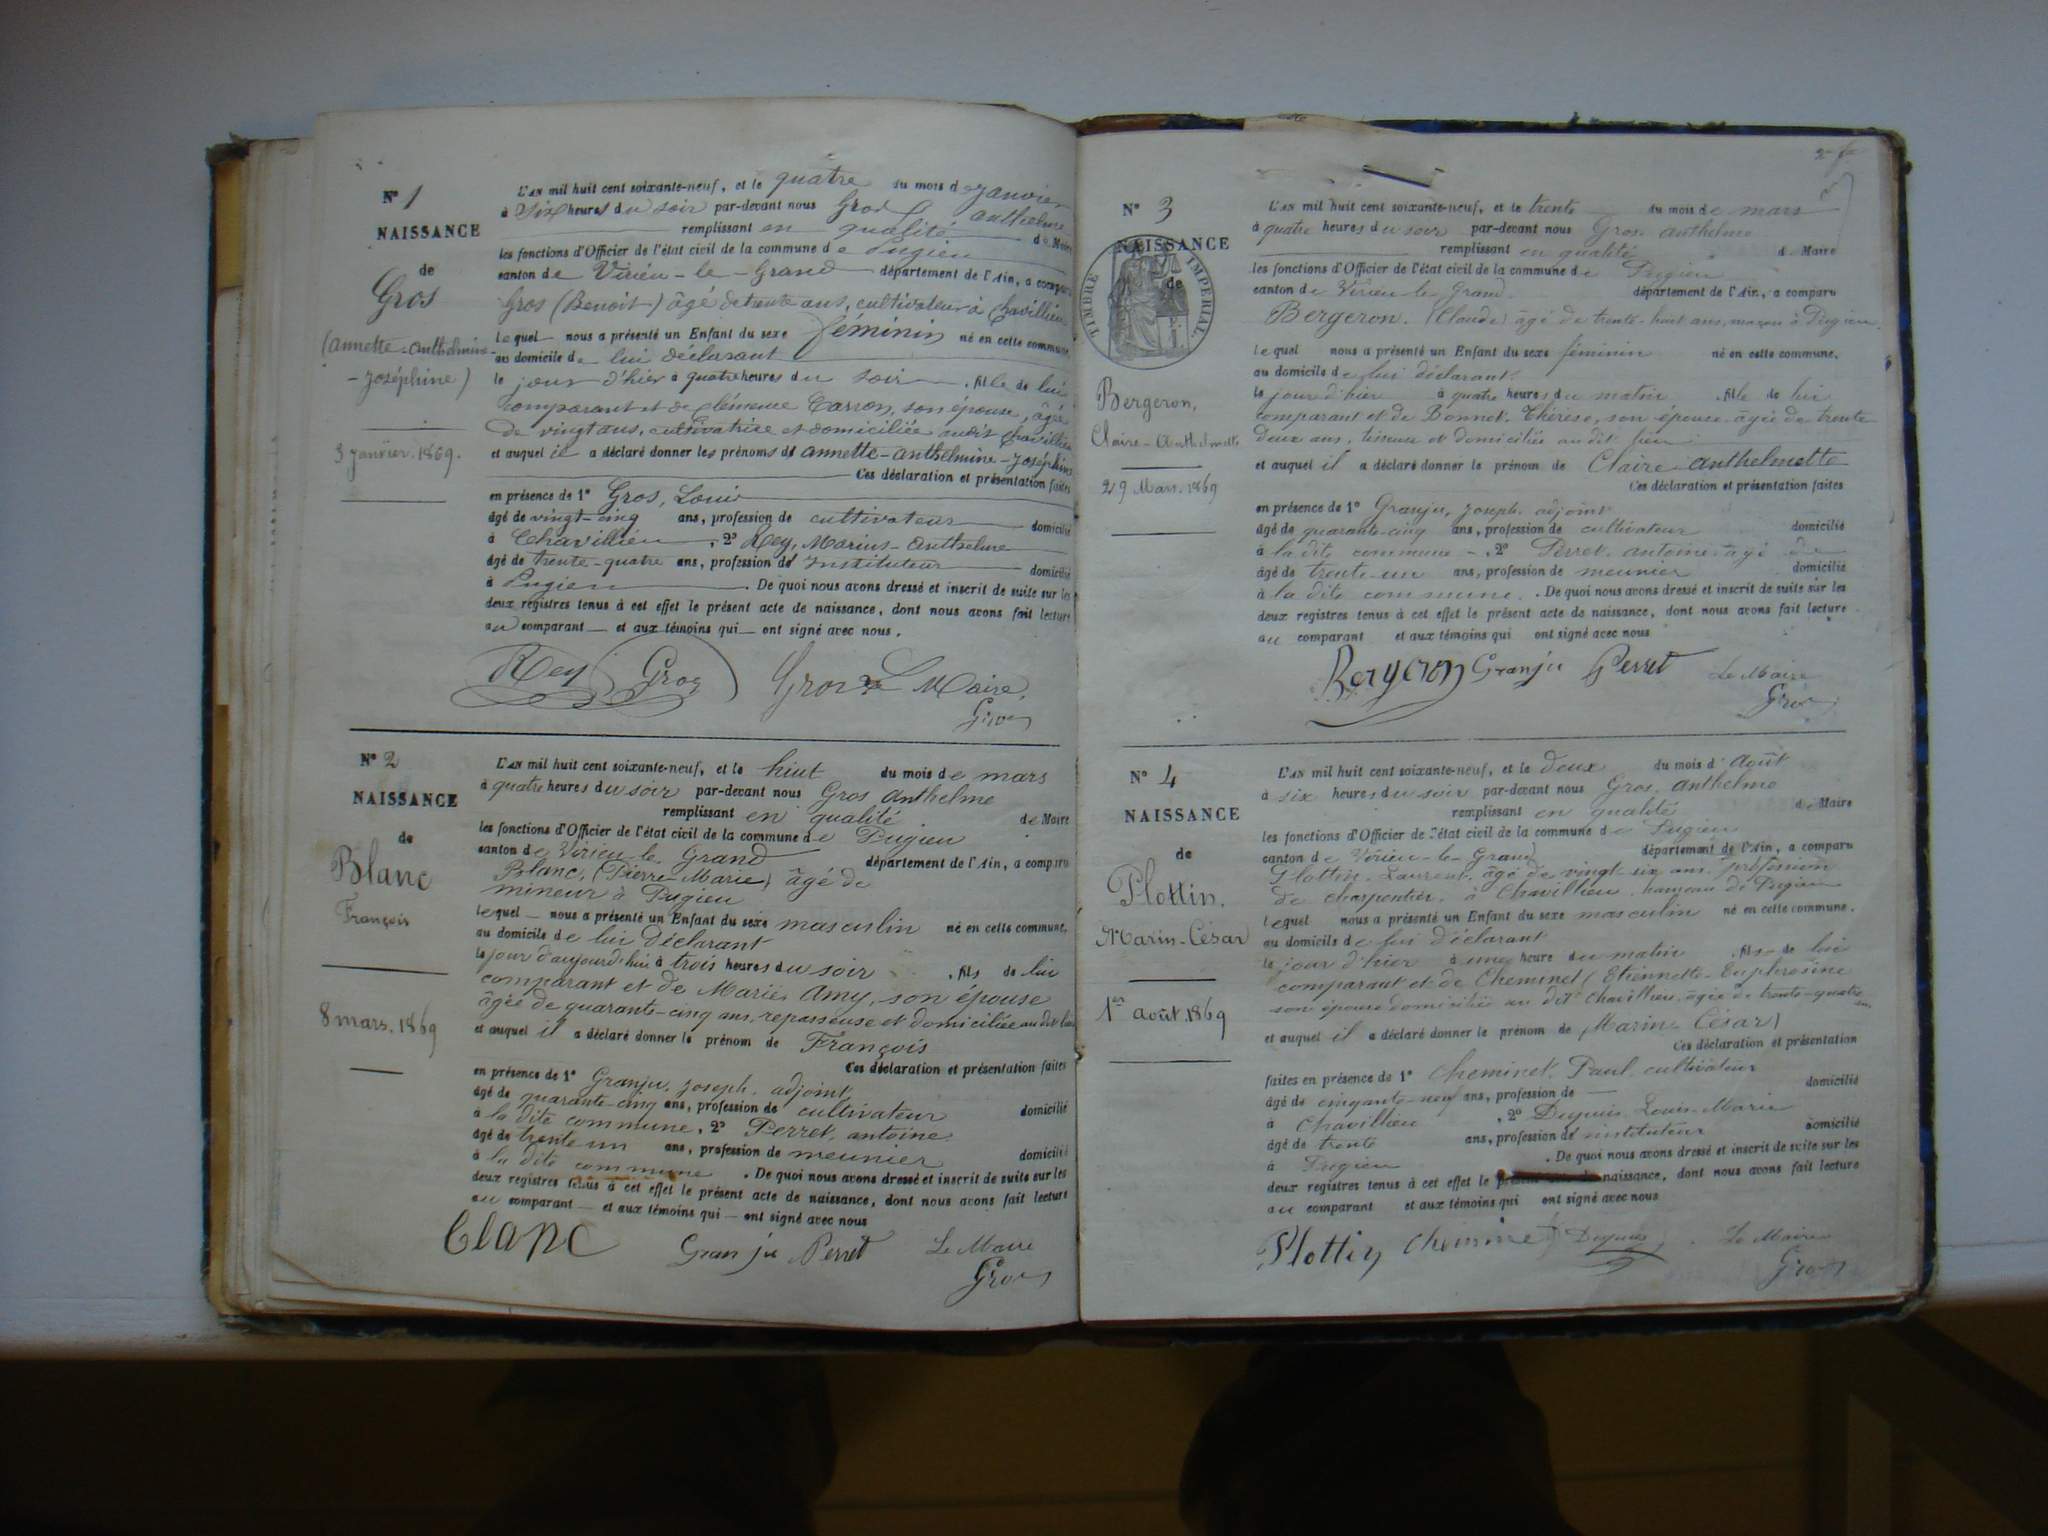 N° 1
NAISSANCE
de
Gros
(annette-anthelmine-
-Joséphine)
3 janvier. 1869.
L'AN mil huit cent soixante-neuf, et le quatre du mois de janvier
à six heures du soir par-devant nous Gros anthelme
remplissant en qualité de Maire
les fonctions d'Officier de l'état civil de la commune de Pugieu
canton de Virieu-le-Grand département de l'Ain, a comparu
Gros (Benoit) âgé de trente ans, cultivateur à Chavillieu
lequel nous a présenté un Enfant du sexe féminin né en cette commune,
au domicile de lui déclarant
le jour d'hier à quatre heures du soir, fille de lui
comparant et de Clémence Carron, son épouse, âgée
de vingt ans, cultivatrice et domiciliée audit Chavillieu
et auquel il a déclaré donner les prénoms de annette-anthelmine-Joséphine
Ces déclaration et présentation faites
en présence de 1° Gros, Louis
âgé de vingt-cinq ans, profession de cultivateur domicilié
à Chavillieu, 2° Rey, Marius-anthelme
âgé de trente-quatre ans, profession d'Instituteur domicilié
à Pugieu. De quoi nous avons dressé et inscrit de suite sur les
deux registres tenus à cet effet le présent acte de naissance, dont nous avons fait lecture
au comparant et aux témoins qui ont signé avec nous.
Rey Gros Gros Le Maire,
Gros
N° 2
NAISSANCE
de
Blanc
François
8 mars. 1869
L'AN mil huit cent soixante-neuf, et le huit du mois de mars
à quatre heures du soir par-devant nous Gros anthelme
remplissant en qualité de Maire
les fonctions d'Officier de l'état civil de la commune de Pugieu
canton de Virieu-le-Grand département de l'Ain, a comparu
Blanc, (Pierre-Marie) âgé de
mineur à Pugieu
lequel nous a présenté un Enfant du sexe masculin né en cette commune,
au domicile de lui déclarant
le jour d'aujourd'hui à trois heures du soir, fils de lui
comparant et de Marie Amy, son épouse
âgée de quarante-cinq ans, repasseuse et domiciliée au dit lieu
et auquel il a déclaré donner le prénom de François
Ces déclaration et présentation faites
en présence de 1° Granju, Joseph, adjoint
âgé de quarante-cinq ans, profession de cultivateur domicilié
à la dite commune, 2° Perret, antoine
âgé de trente un ans, profession de meunier domicilié
à la dite commune. De quoi nous avons dressé et inscrit de suite sur les
deux registres tenus à cet effet le présent acte de naissance, dont nous avons fait lecture
au comparant et aux témoins qui ont signé avec nous
Blanc Granju Perret Le Maire
Gros
N° 3
NAISSANCE
de
TIMBRE IMPERIAL
Bergeron,
Claire-Anthelmette
29 Mars. 1869
L'AN mil huit cent soixante-neuf, et le trente du mois de mars
à quatre heures du soir par-devant nous Gros anthelme
remplissant en qualité de Maire
les fonctions d'Officier de l'état civil de la commune de Pugieu
canton de Virieu-le-Grand département de l'Ain, a comparu
Bergeron. (Claude) âgé de trente-huit ans, maçon à Pugieu.
lequel nous a présenté un Enfant du sexe féminin né en cette commune,
au domicile de lui déclarant.
le jour d'hier à quatre heures du matin, fille de lui
comparant et de Bonnet, Thérèse, son épouse, âgée de trente
deux ans, tisseuse et domiciliée au dit lieu
et auquel il a déclaré donner le prénom de Claire Anthelmette
Ces déclaration et présentation faites
en présence de 1° Granju, Joseph, adjoint
âgé de quarante-cinq ans, profession de cultivateur domicilié
à la dite commune, 2° Perret, antoine âgé de
âgé de trente-un ans, profession de meunier domicilié
à la dite commune. De quoi nous avons dressé et inscrit de suite sur les
deux registres tenus à cet effet le présent acte de naissance, dont nous avons fait lecture
au comparant et aux témoins qui ont signé avec nous
Bergeron Granju Perret Le Maire
Gros
N° 4
NAISSANCE
de
Plottin.
Marin-César
1er août. 1869
L'AN mil huit cent soixante-neuf, et le deux du mois d'Août
à six heures du soir par-devant nous Gros, anthelme
remplissant en qualité de Maire
les fonctions d'Officier de l'état civil de la commune de Pugieu
canton de Virieu-le-Grand département de l'Ain, a comparu
Plottin, Laurent, âgé de vingt-six ans, profession
de charpentier, à Chavillieu, hameau de Pugieu
lequel nous a présenté un Enfant du sexe masculin né en cette commune.
au domicile de lui déclarant
le jour d'hier à une heure du matin, fils de lui
comparant et de Cheminet (Etiennette-Euphrosine
son épouse domiciliée au dit Chavillieu, âgée de trente-quatre ans.
et auquel il a déclaré donner le prénom de Marin-César)
Ces déclaration et présentation
faites en présence de 1° Cheminet, Paul, cultivateur
âgé de cinquante-neuf ans, profession de domicilié
à Chavillieu, 2° Dupuis, Louis-Marie
âgé de trente ans, profession d'instituteur domicilié
à Pugieu. De quoi nous avons dressé et inscrit de suite sur les
deux registres tenus à cet effet le présent acte de naissance, dont nous avons fait lecture
au comparant et aux témoins qui ont signé avec nous
Plottin Cheminet Dupuis Le Maire
Gros